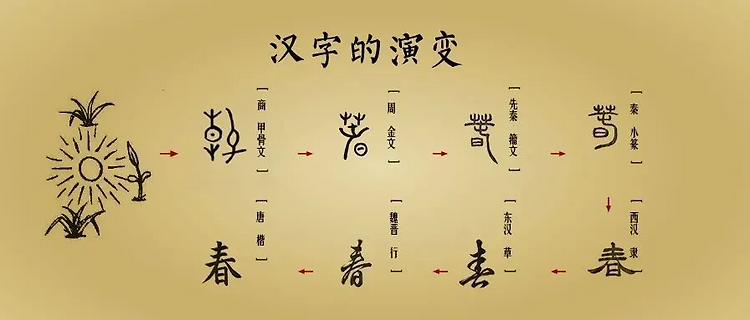 汉字的演变
[商 甲骨文]
[周 金文]
[先秦 籀文]
[秦 小篆]
春
[西汉 隶]
春
[东汉 草]
春
[魏晋 行]
春
[唐 楷]